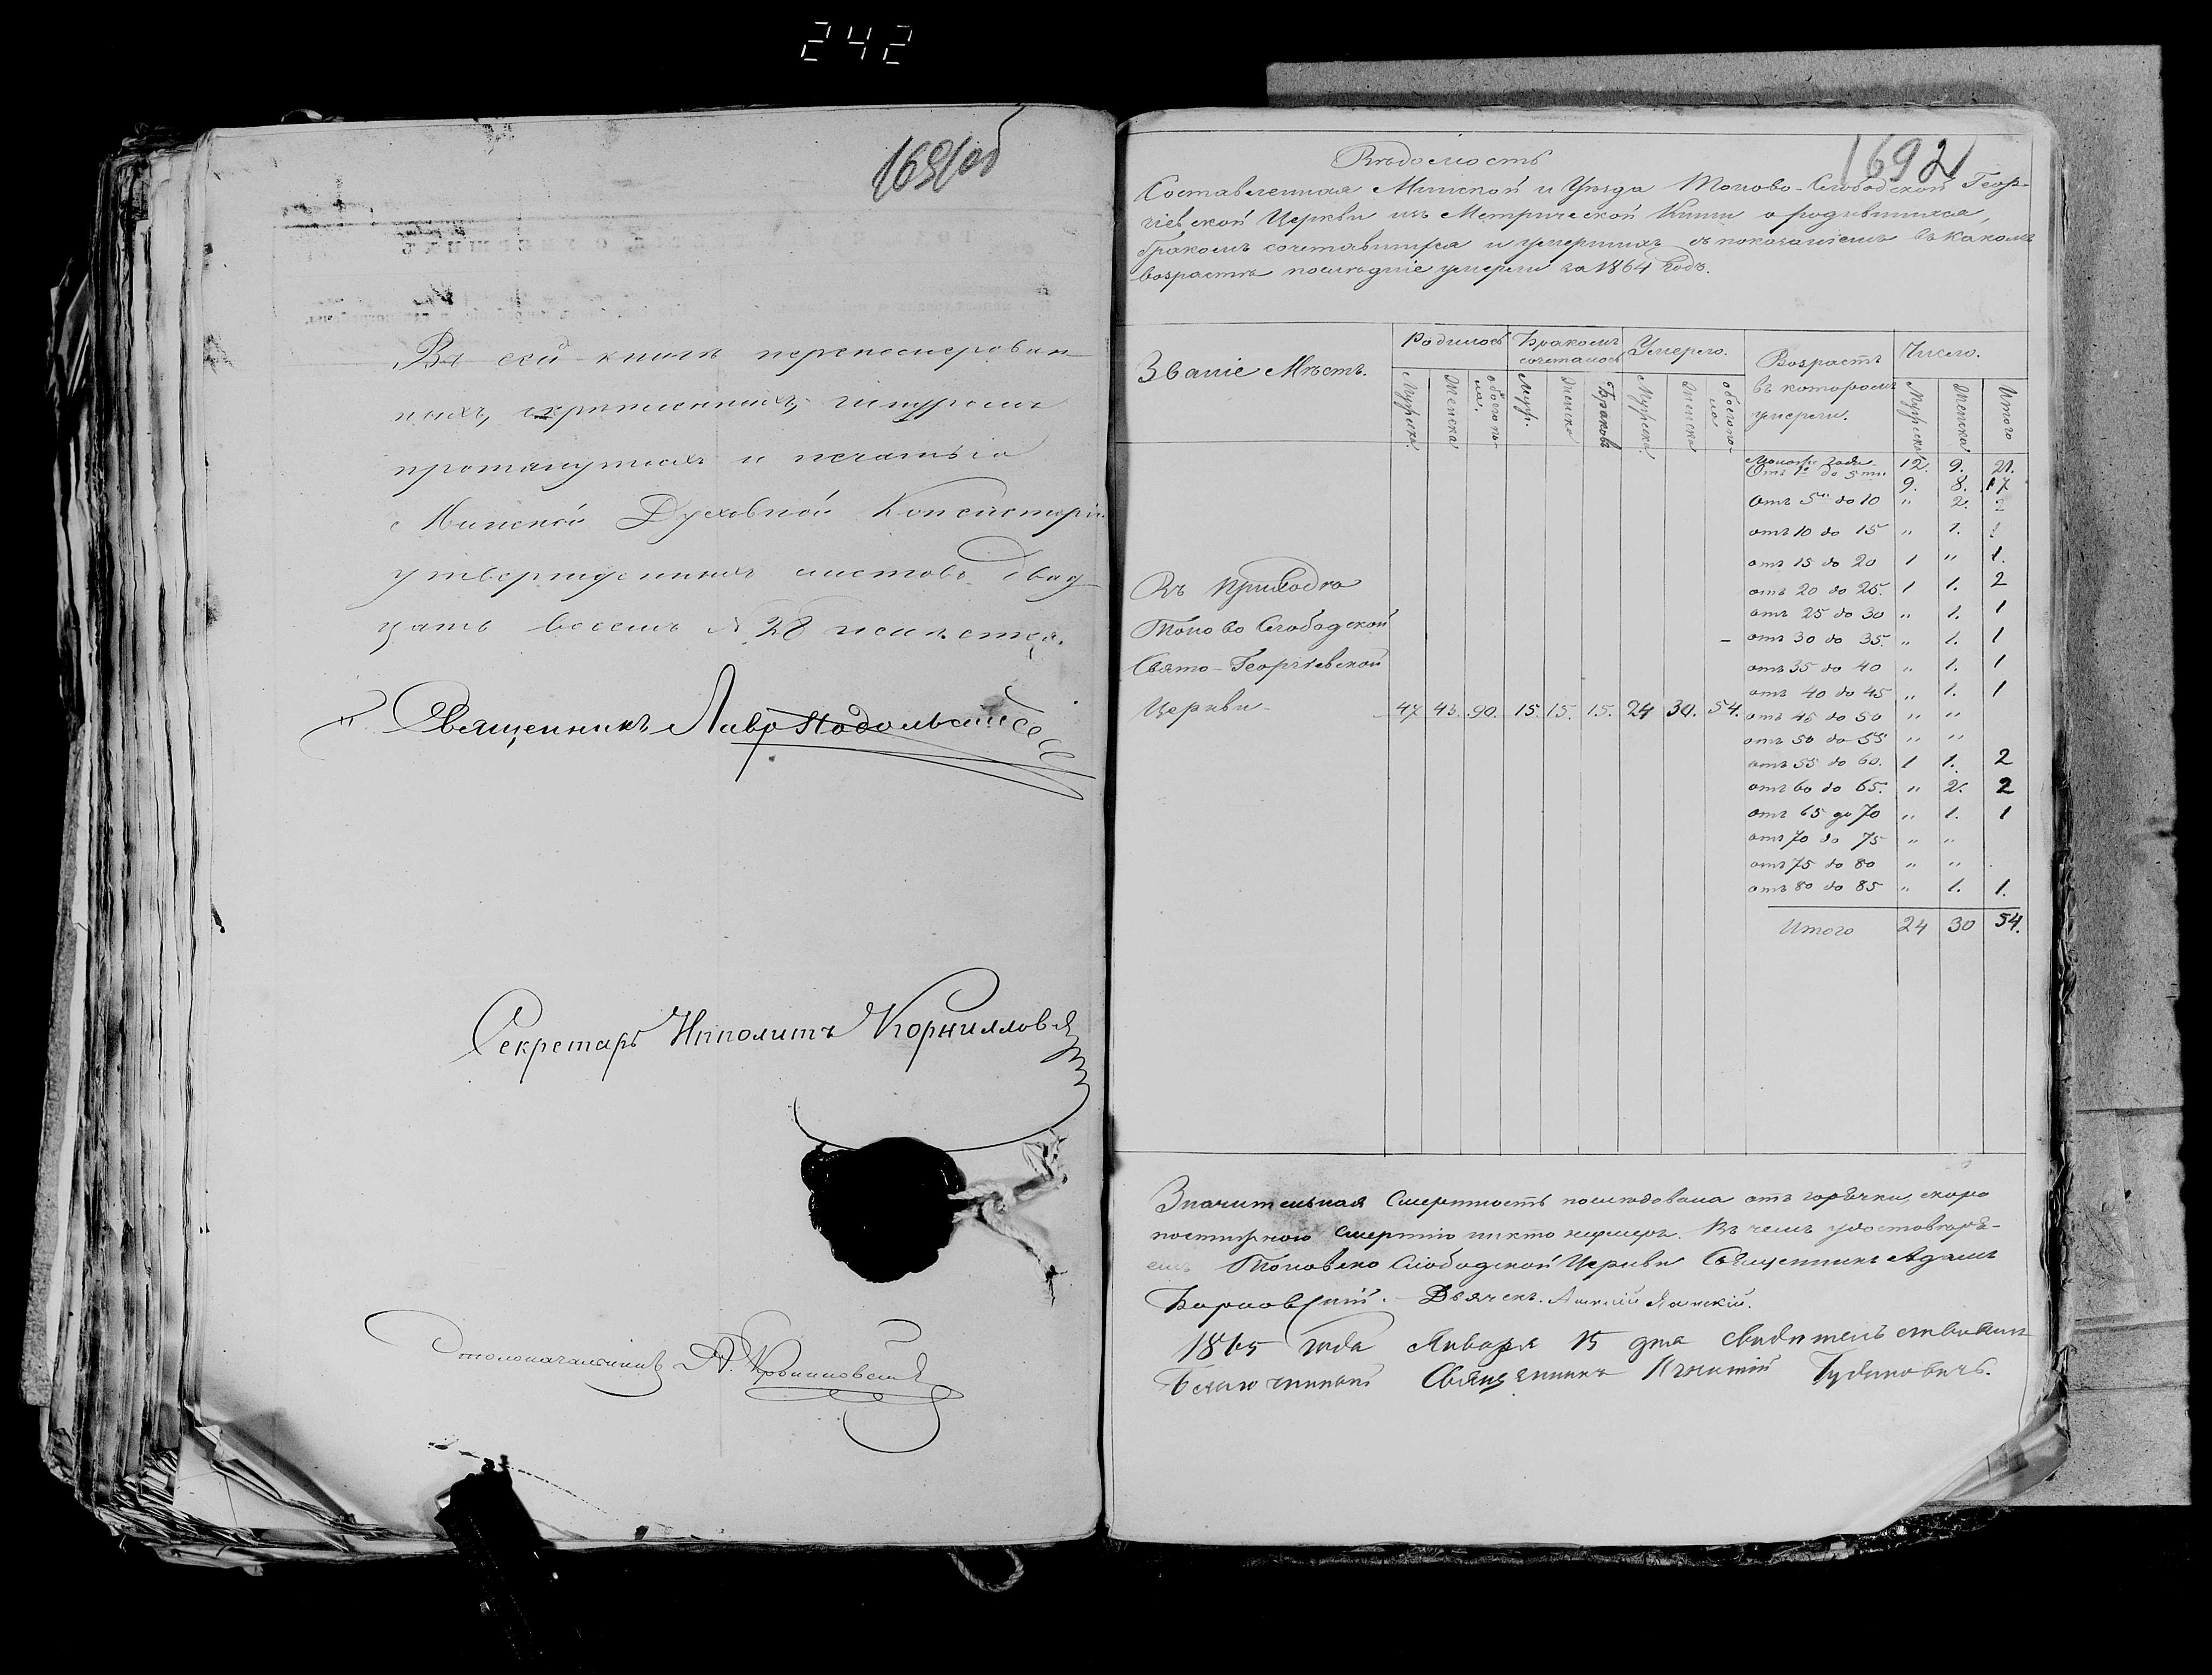 242
1691об
Въ сей книгѣ перенумерован-
ныхъ, скрѣпленныхъ, шнуромъ
протянутыхъ и печатью
Минской Духовной Консисторіи
утвержденныхъ листовъ двад-
цать восемь № 28 числится.
Священникъ Лавр Подольскій
Секретарь Ипполитъ Корниллов
Столоначальникъ
1692
Вѣдомость
Составленная Минской и Уѣзда Тоново-Слободской Геор-
гіевской Церкви изъ Метрической Книги о родившихся
бракомъ сочетавшихся и умершихъ съ показаніемъ въ какомъ
возрастѣ послѣдніе умерли за 1864 Годъ.
Званіе Мѣстъ. Родилось Бракомъ сочеталось Умерло. Возрастъ въ которомъ умерли. Число.
Мужска. Женска обоего пола. Муж. Женска Браковъ Мужска Женска обоего пола Мужска Женска Итого
Менѣе года 12. 9. 21.
Отъ 1го до 5ти. 9. 8. 17
Отъ 5ти до 10 " 2. 2
отъ 10 до 15 " 1. 1
отъ 15 до 20 1 " 1.
отъ 20 до 25. 1 1. 2
отъ 25 до 30 " 1. 1
отъ 30 до 35. " 1. 1
отъ 35 до 40 " 1. 1
отъ 40 до 45 " 1. 1
Въ Приходѣ
Тоново Слободской
Свято-Георгіевской
Церкви 47 43. 90. 15. 15. 15. 24 30. 54.
отъ 45 до 50 " "
отъ 50 до 55 " "
отъ 55 до 60. 1 1. 2
отъ 60 до 65. " 2. 2
отъ 65 до 70 " 1. 1
отъ 70 до 75 " "
отъ 75 до 80 " "
отъ 80 до 85 " 1. 1.
Итого 24 30 54.
Значительная Смертность послѣдовала отъ горячки, скоро
постижною смертію никто неумеръ. Въ чемъ удостовѣря-
емъ Слободской Церкви Священникъ Адамъ
Дьячекъ.
1865 года Января 15 дня свидѣтельствовалъ
Благочинный Священникъ